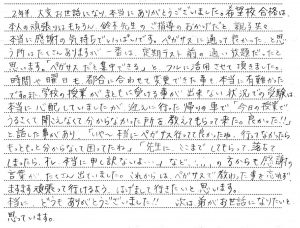 2年半、大変お世話になり、本当にありがとうございました。希望校合格は、
本人の頑張りはもちろん、鈴子先生のご指導のおかげだと、親子共々
本当に感謝の気持ちでいっぱいです。ペガサスに通って良かった…と思
う所はたくさんありますが、一番は、定期テスト前の通い放題だったと
思います。「ペガサスだと集中できる」と、フルに活用させて頂きました。
時間や曜日も都合に合わせて変更できた事も本当に有難かった
です。学校の授業がまともに受ける事が出来ない状況での受験は
本当に心配していましたが、迎えに行った帰りの車で「今日の授業で
うるさくて聞こえなくて分からなかった所を教えてもらって来た。良かった!!」
と話した事があり、「いや〜本当にペガサス行ってて良かったね。行ってなかったら
もっともっと分からなくて困ってたね」「先生に、ここまでしてもらって、落ちて
しまったら、それ本当に申し訳ないネ…」など、、、の方からも感謝の
言葉がたくさん出ていました。これからは、ペガサスで教わった事を忘れず
ますます頑張って行けるよう、はげまして行きたいと思います。
本当に、どうもありがとうございました!!次は弟がお世話になりたいと
思っています。